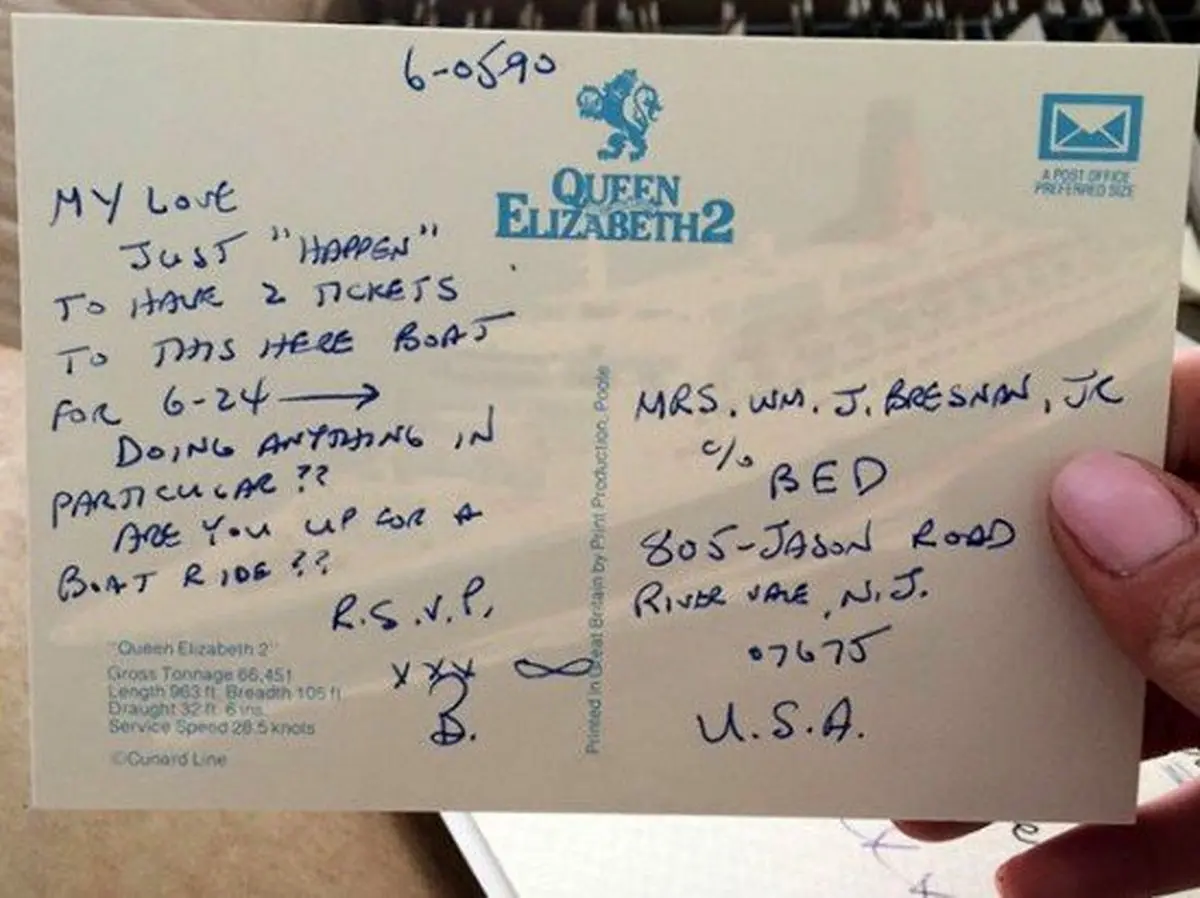 6-0590
QUEEN
ELIZABETH2
A POST OFFICE
PREFERRED SIZE
MY LOVE
JUST "HAPPEN"
TO HAVE 2 TICKETS
TO THIS HERE BOAT
FOR 6-24 →
DOING ANYTHING IN
PARTICULAR ??
ARE YOU UP FOR A
BOAT RIDE ??
R.S.V.P.
XXX ∞
B.
"Queen Elizabeth 2"
Gross Tonnage 66,451
Length 963 ft. Breadth 105 ft.
Draught 32 ft. 6 ins.
Service Speed 28.5 knots
©Cunard Line
Printed in Great Britain by Print Production, Poole
MRS. WM. J. BRESNAN, JR
c/o
BED
805-JASON ROAD
RIVER VALE, N.J.
07675
U.S.A.